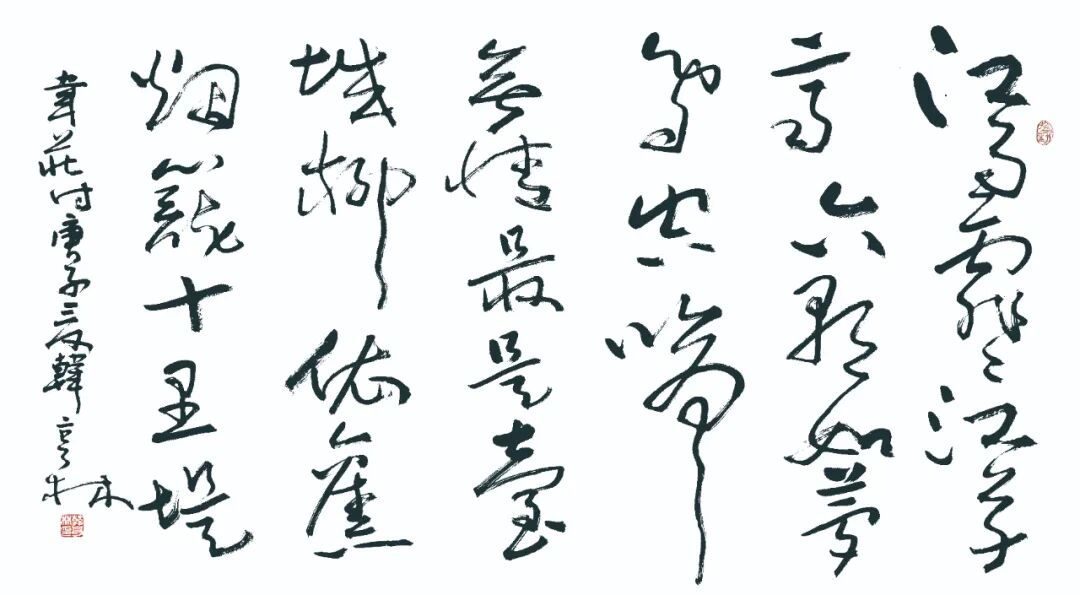 江雨霏〻江草
齊六朝如夢
鳥空啼
無情最是臺
城柳依舊
烟籠十里堤
韋莊诗庚子三夏韓亨林